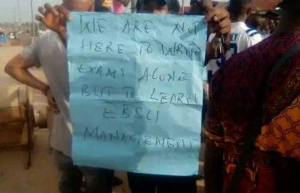 WE ARE NOT
HERE TO WRITE
EXAMS ALONE
BUT TO LEARN
EBSU
MANAGEMENT